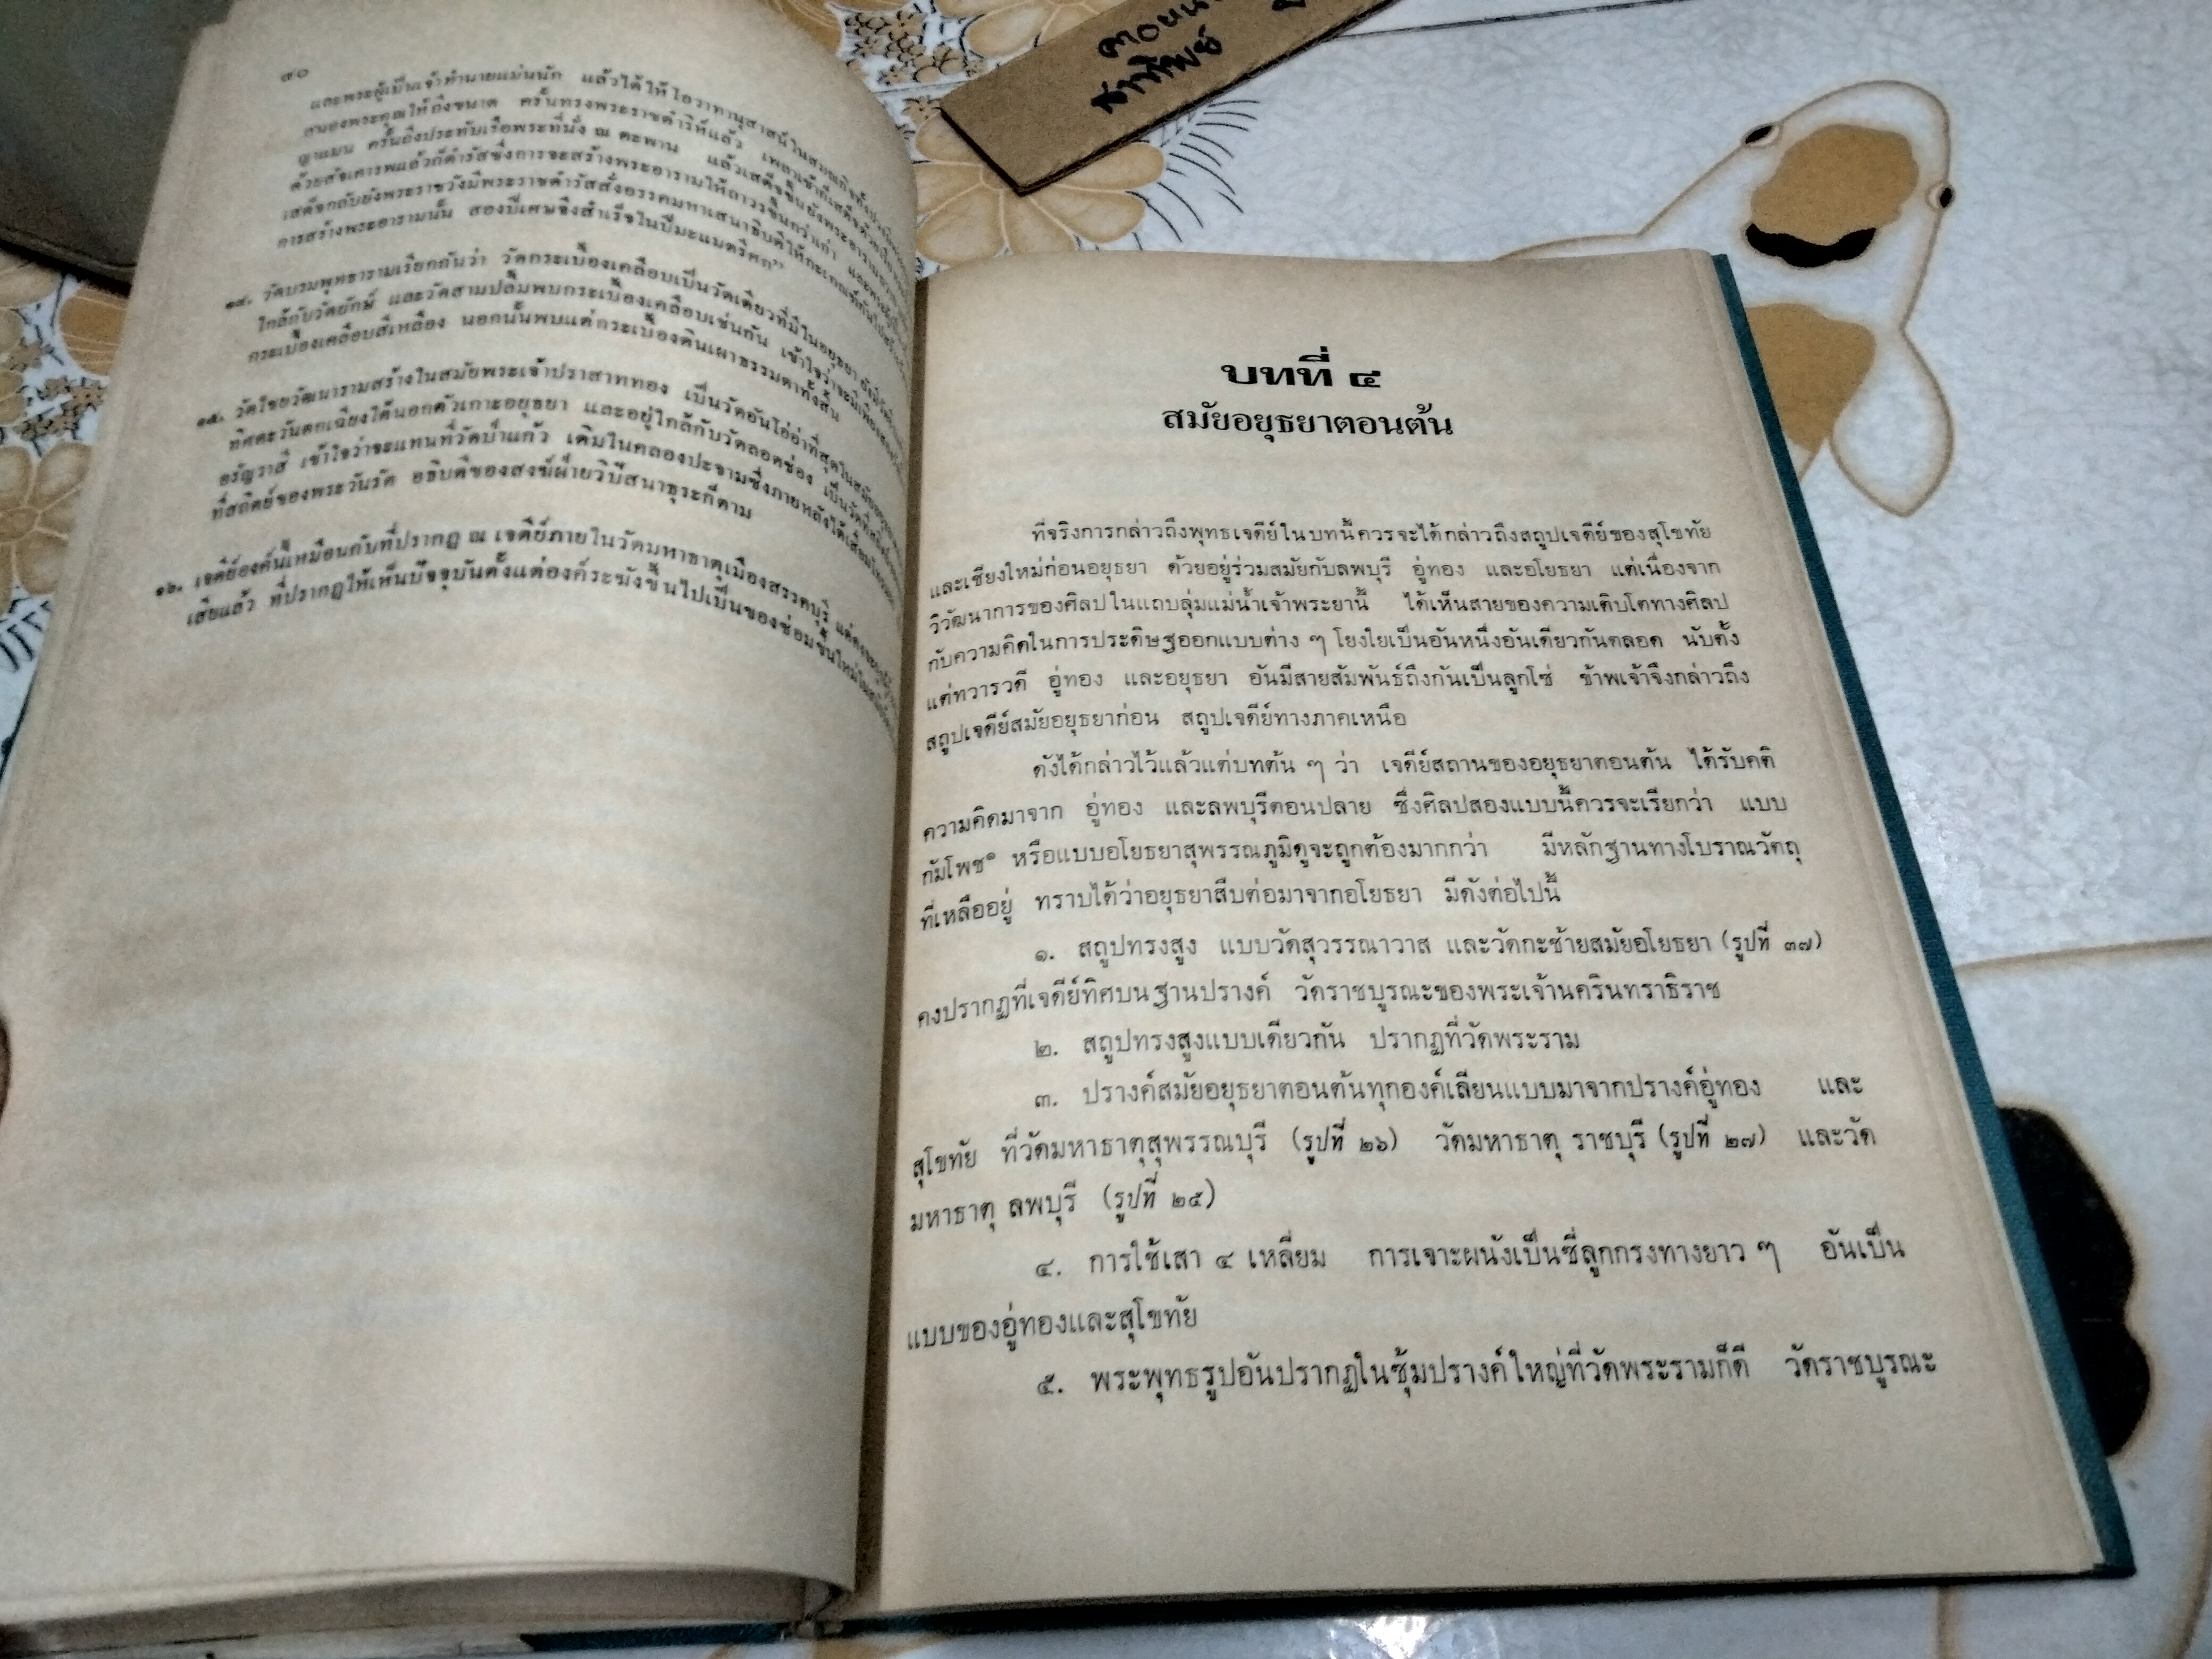 ๙๐
และพระผู้เป็นเจ้าทำนายแม่นนัก แล้วได้ให้โอวาทานุสาสน์ในสมณกิจทั้งปวง
สนองพระคุณให้ถึงขนาด ครั้นทรงพระราชดำริห์แล้ว เพลาเช้าก็เสด็จด้วย
ญาแมน ครั้นถึงประทับเรือพระที่นั่ง ณ ตะพาน แล้วเสด็จขึ้นยังพระอาราม
ด้วยสัจเคารพแล้วก็ดำรัสซึ่งการจะสร้างพระอารามให้ถาวรขึ้นกว่าเก่า
เสด็จกลับยังพระราชวังมีพระราชดำรัสสั่งอรรคมหาเสนาธิบดีให้กะเกณฑ์กัน
การสร้างพระอารามนั้น สองปีเศษจึงสำเร็จในปีมะแมตรีศก”
๑๔. วัดบรมพุทธารามเรียกกันว่า วัดกระเบื้องเคลือบเป็นวัดเดียวที่มีในอยุธยา
ใกล้กับวัดยักษ์ และวัดสามปลื้มพบกระเบื้องเคลือบเช่นกัน เข้าใจว่าจะมีเพียง
กระเบื้องเคลือบสีเหลือง นอกนั้นพบแต่กระเบื้องดินเผาธรรมดาทั้งสิ้น
๑๕. วัดไชยวัฒนารามสร้างในสมัยพระเจ้าปราสาททอง เป็นวัดอันโอ่อ่าที่สุดในสมัย
ทิศตะวันตกเฉียงใต้นอกตัวเกาะอยุธยา และอยู่ใกล้กับวัดลอดช่อง เป็นวัดที่
อรัญราสี เข้าใจว่าจะแทนที่วัดป่าแก้ว เดิมในคลองประจามซึ่งภายหลังได้เสื่อม
ที่สถิตย์ของพระวันรัต อธิบดีของสงฆ์ฝ่ายวิปัสนาธุระก็ตาม
๑๖. เจดีย์องค์นี้เหมือนกับที่ปรากฏ ณ เจดีย์ภายในวัดมหาธาตุเมืองสรรคบุรี
เสียแล้ว ที่ปรากฏให้เห็นปัจจุบันตั้งแต่องค์ระฆังขึ้นไปเป็นของซ่อมขึ้นใหม่
บทที่ ๔
สมัยอยุธยาตอนต้น
ที่จริงการกล่าวถึงพุทธเจดีย์ในบทนี้ควรจะได้กล่าวถึงสถูปเจดีย์ของสุโขทัย
และเชียงใหม่ก่อนอยุธยา ด้วยอยู่ร่วมสมัยกับลพบุรี อู่ทอง และอโยธยา แต่เนื่องจาก
วิวัฒนาการของศิลปในแถบลุ่มแม่น้ำเจ้าพระยานี้ ได้เห็นสายของความเติบโตทางศิลป
กับความคิดในการประดิษฐออกแบบต่าง ๆ โยงใยเป็นอันหนึ่งอันเดียวกันตลอด นับตั้ง
แต่ทวารวดี อู่ทอง และอยุธยา อันมีสายสัมพันธ์ถึงกันเป็นลูกโซ่ ข้าพเจ้าจึงกล่าวถึง
สถูปเจดีย์สมัยอยุธยาก่อน สถูปเจดีย์ทางภาคเหนือ
ดังได้กล่าวไว้แล้วแต่บทต้น ๆ ว่า เจดีย์สถานของอยุธยาตอนต้น ได้รับคติ
ความคิดมาจาก อู่ทอง และลพบุรีตอนปลาย ซึ่งศิลปสองแบบนี้ควรจะเรียกว่า แบบ
กัมโพช๑ หรือแบบอโยธยาสุพรรณภูมิดูจะถูกต้องมากกว่า มีหลักฐานทางโบราณวัตถุ
ที่เหลืออยู่ ทราบได้ว่าอยุธยาสืบต่อมาจากอโยธยา มีดังต่อไปนี้
๑. สถูปทรงสูง แบบวัดสุวรรณาวาส และวัดกะซ้ายสมัยอโยธยา (รูปที่ ๓๗)
คงปรากฏที่เจดีย์ทิศบนฐานปรางค์ วัดราชบูรณะของพระเจ้านครินทราธิราช
๒. สถูปทรงสูงแบบเดียวกัน ปรากฏที่วัดพระราม
๓. ปรางค์สมัยอยุธยาตอนต้นทุกองค์เลียนแบบมาจากปรางค์อู่ทอง และ
สุโขทัย ที่วัดมหาธาตุสุพรรณบุรี (รูปที่ ๒๖) วัดมหาธาตุ ราชบุรี (รูปที่ ๒๗) และวัด
มหาธาตุ ลพบุรี (รูปที่ ๒๕)
๔. การใช้เสา ๔ เหลี่ยม การเจาะผนังเป็นซี่ลูกกรงทางยาว ๆ อันเป็น
แบบของอู่ทองและสุโขทัย
๕. พระพุทธรูปอันปรากฏในซุ้มปรางค์ใหญ่ที่วัดพระรามก็ดี วัดราชบูรณะ